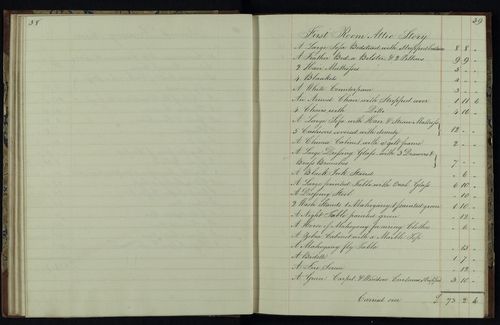 38
39
First Room Attic Story
A Large Sofa Bedstead with Stripped 8 8 -
A Feather Bed a Bolster & 2 Pillows 9 9 -
2 Hair Mattrasses 5 - -
4 Blankets 4 - -
A White Counterpane 3 - -
An Armed Chair with Stripped cover 1 11 6
4 Chairs with Ditto 4 10 -
A Large Sofa with Hair & Straw Mattrass
3 Cushions covered with 12 - -
A Chimney Cabinet with a gilt frame 2 - -
A Large Dressing Glass with 3 Drawers &
Brass Branches 7 - -
A Black Stand - 6 -
A Large painted Table with Oval Glass 6 10 -
A Dressing Stool - 10 -
2 Wash Stands 1 Mahogany & 1 painted green 6 10 -
A Night Table painted green - 12 -
A Horse of Mahogany for airing Clothes - 6 -
A Zebra Cabinet with a Marble Top
A Mahogany fly Table - 15 -
A Bidette 1 7 -
A Fire Screen - 12 -
A Green Carpet & Window Curtains 3 10 -
Carried over £ 73 2 6